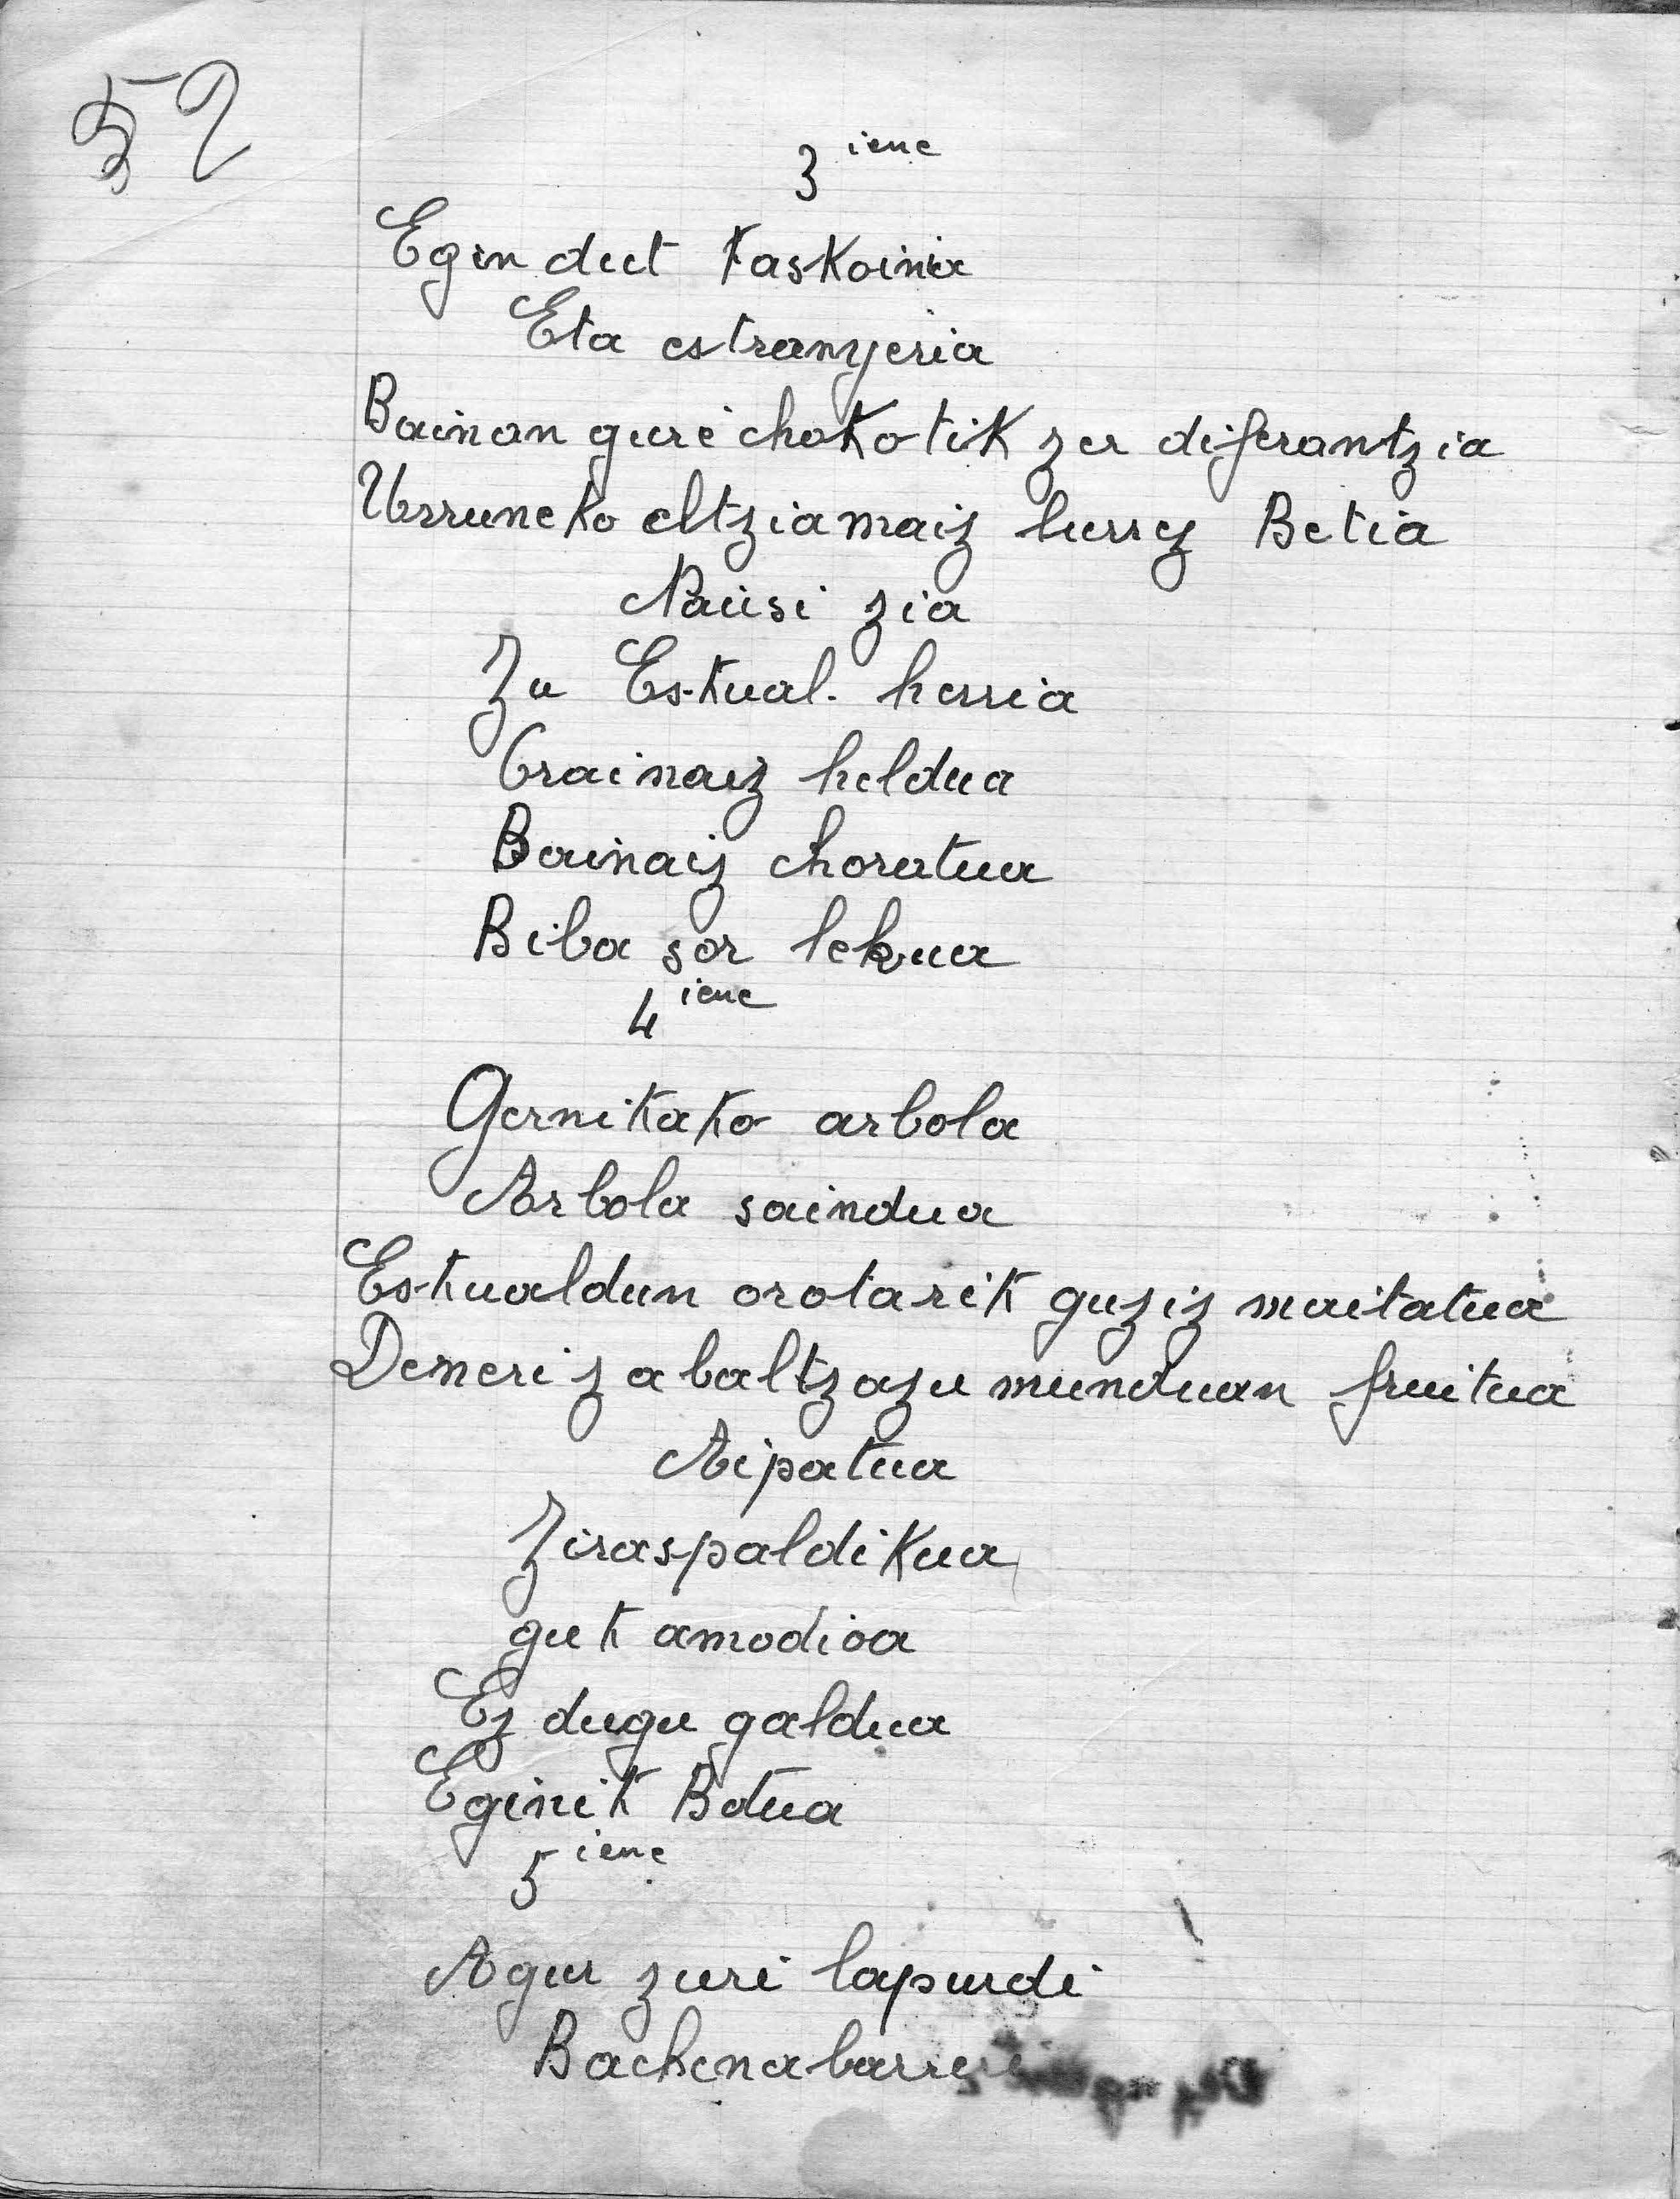 52
3 ieme
Egin dut Kaskoinia
Eta estranyeria
Bainan gure chokotik zer diferantzia
Urruneko eltzia maiz lurrez Betia
Naüsi zia
Zu Eskual-herria
Orai naiz heldua
Bainaiz choratua
Biba sor lekua
4 ieme
Gernikako arbola
Arbola saindua
Eskualdun orotarik guziz maitatua
Demeri zabaltzazu munduan fruitua
Aipatua
Ziraspaldikua
guk amodioa
Ez dugu galdua
Eginik Botua
5 ieme
Agur zuri lapurdi
Bachenabarreri